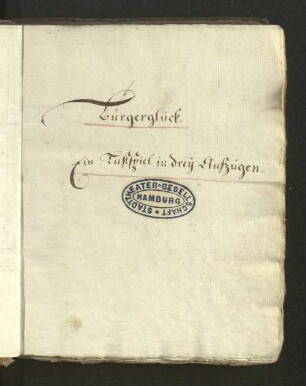 Bürgerglück.
Ein Lustspiel in drey Aufzügen.
STADTTHEATER-GESELLSCHAFT
HAMBURG